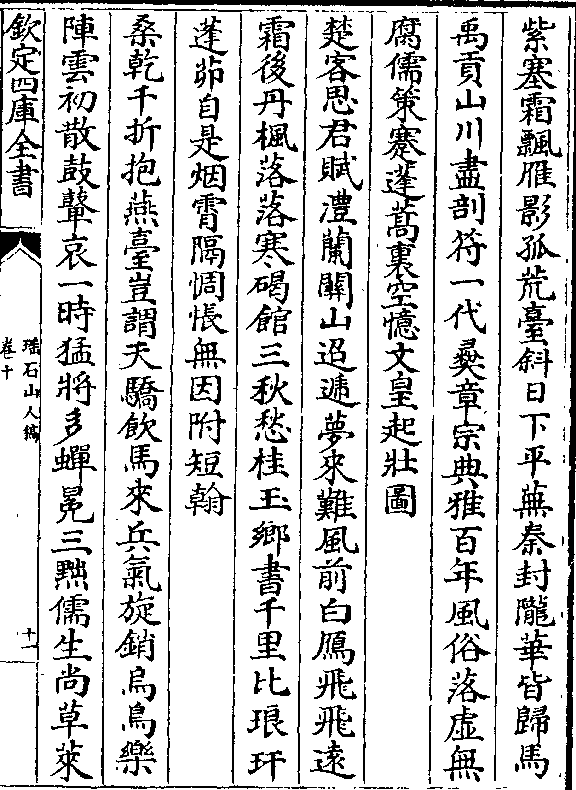 紫塞霜飄雁影孤荒臺斜日下平蕪秦封隴華皆歸馬
禹貢山川盡剖符一代彛章宗典雅百年風俗落虛無
腐儒策蹇蓬蒿裏空憶文皇起壯圖
楚客思君賦澧蘭關山迢遞夢來難風前白鴈飛飛遠
霜後丹楓落落寒碣館三秋愁桂玉鄉書千里比琅玕
蓬茆自是烟霄隔惆悵無因附短翰
桑乾千折抱燕臺豈謂天驕飲馬來兵氣旋銷烏鳥樂
陣雲初散鼓鼙哀一時猛將多蟬冕三黜儒生尚草萊
欽定四庫全書
瑶石山人稿
卷十
十一